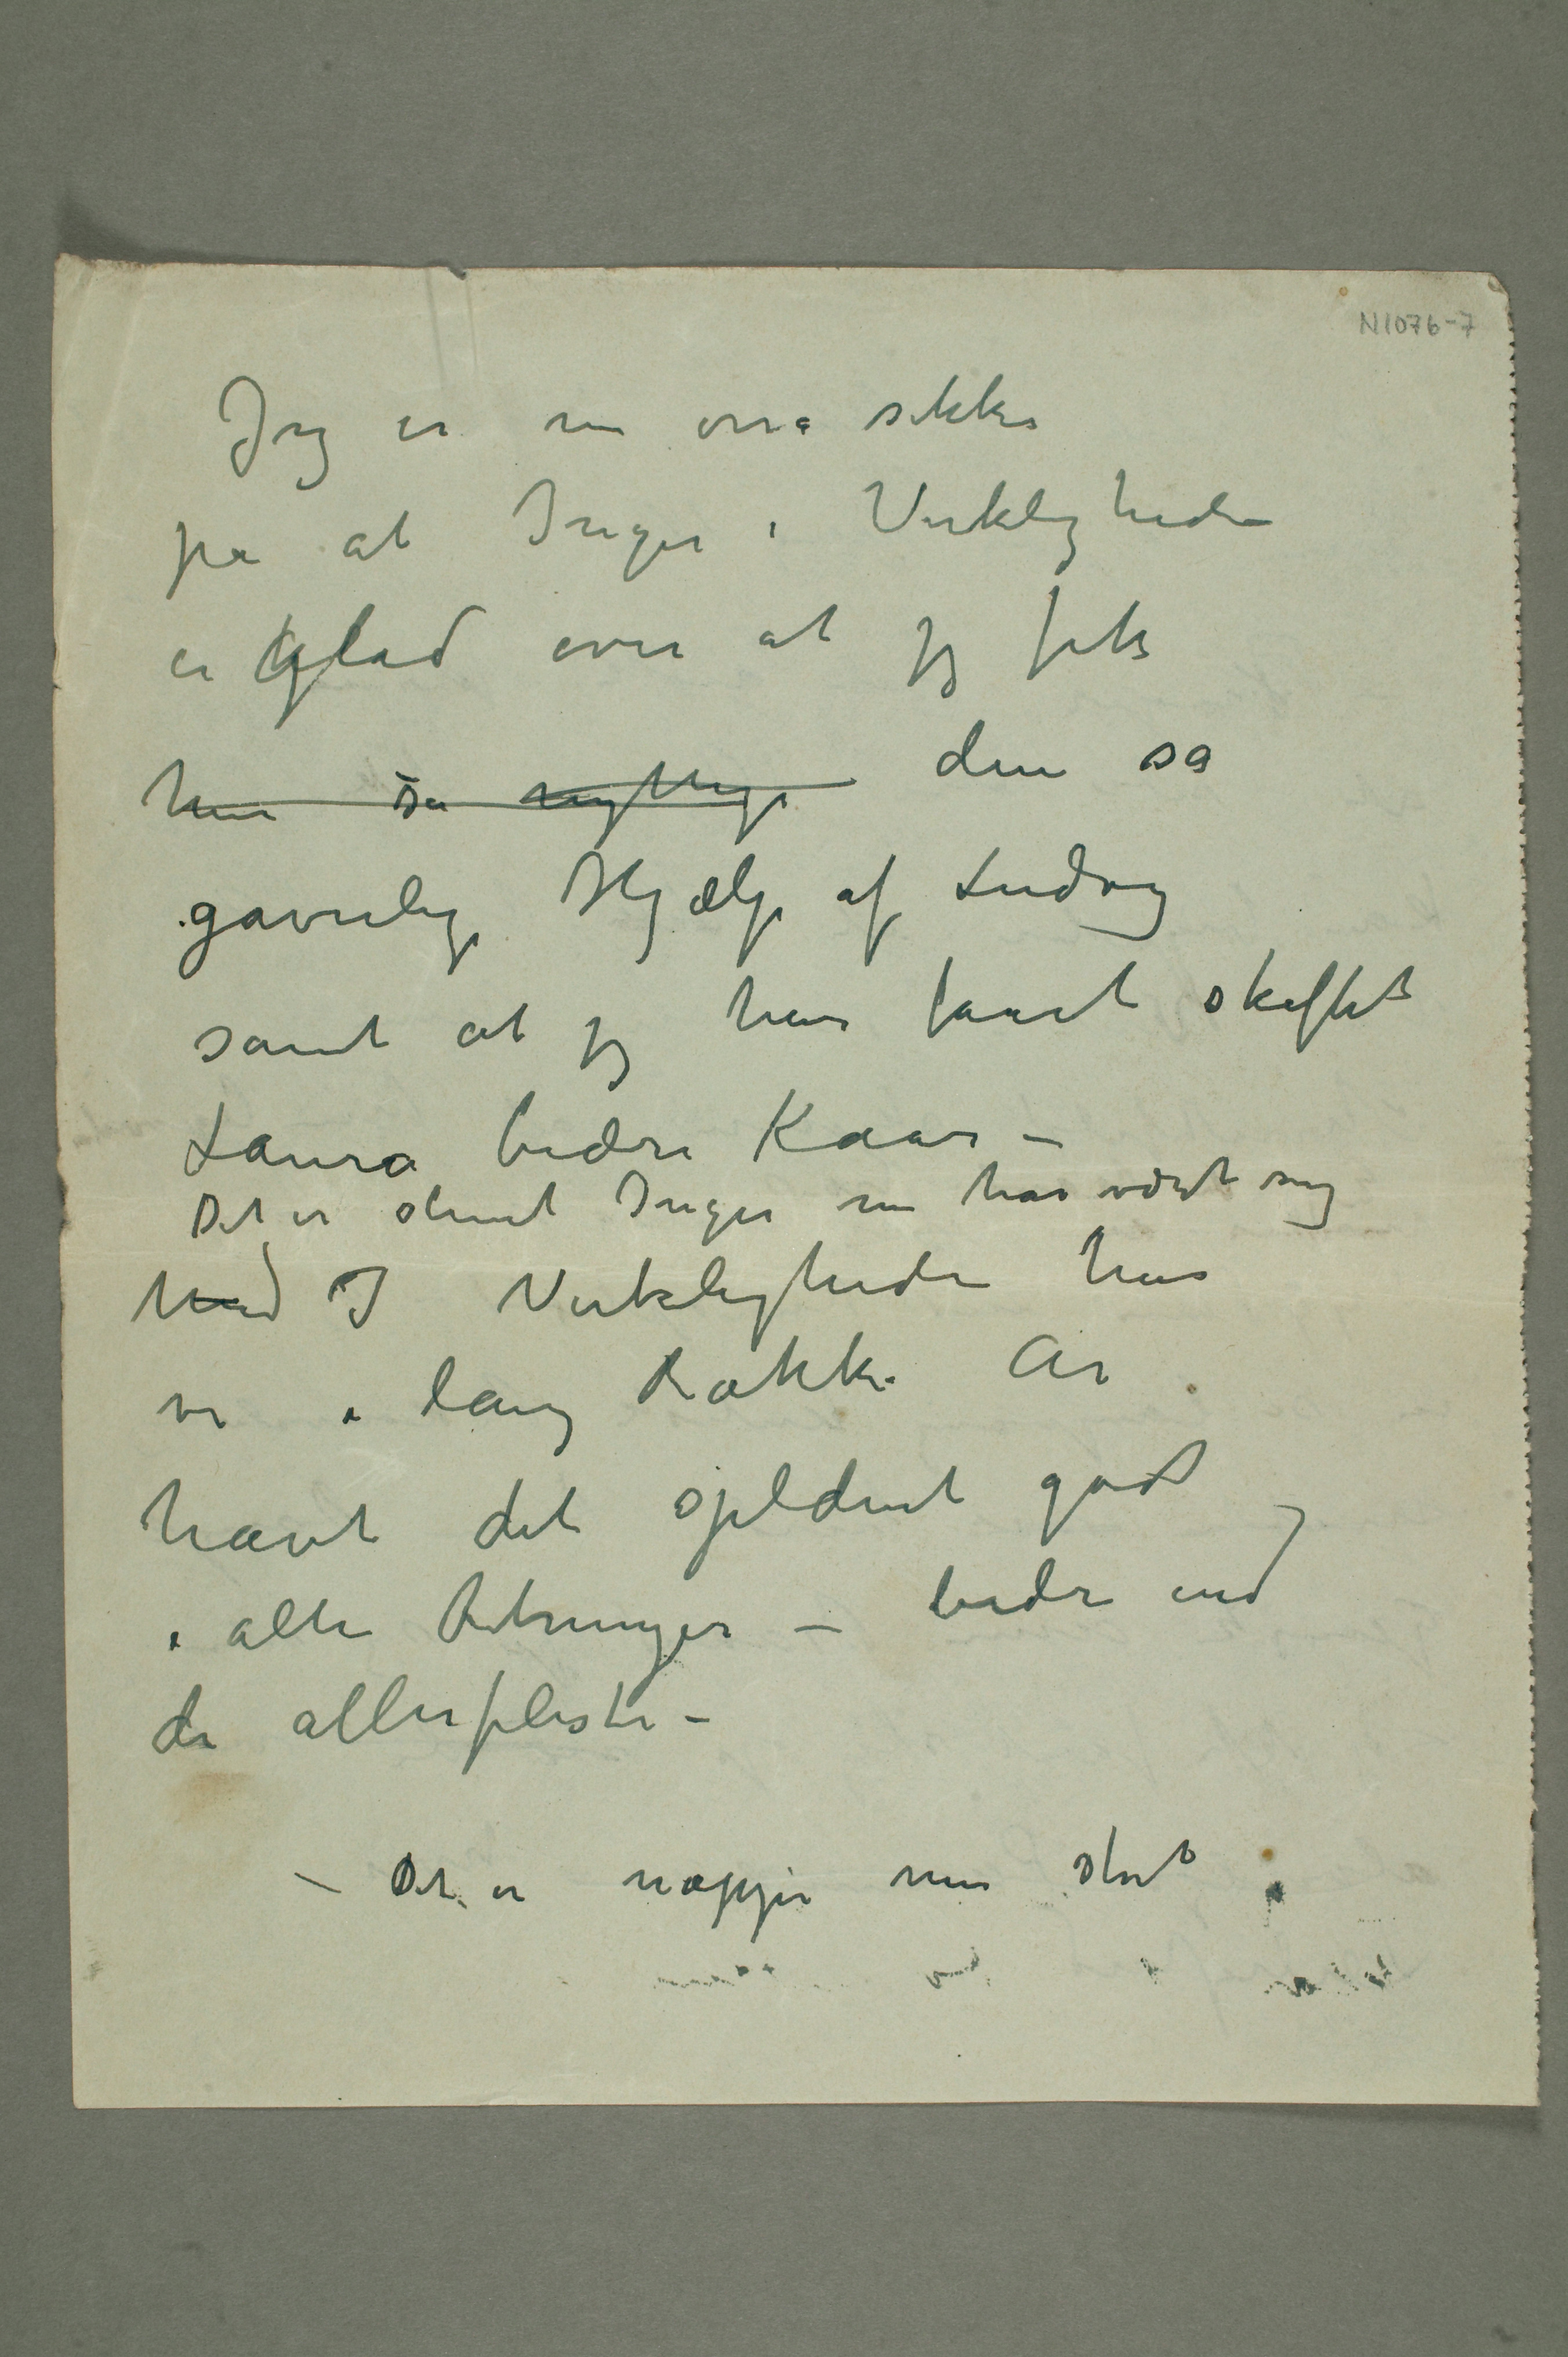 N1076-7
Jeg er nu også sikker
på at Inger i Virkeligheden
er glad over at jeg fik
hun så nyttige den så
gavnlig Hjælp af Ludvig
samt at jeg har faaet skaffet
Laura bedre Kaar –
Det er slemt Inger nu har været syg
Med I Virkeligheden har
vi i lang Række År
havt det spldent godt
i alle Retninger – bedre end
de allerfleste –
– Det er næppe nu stort